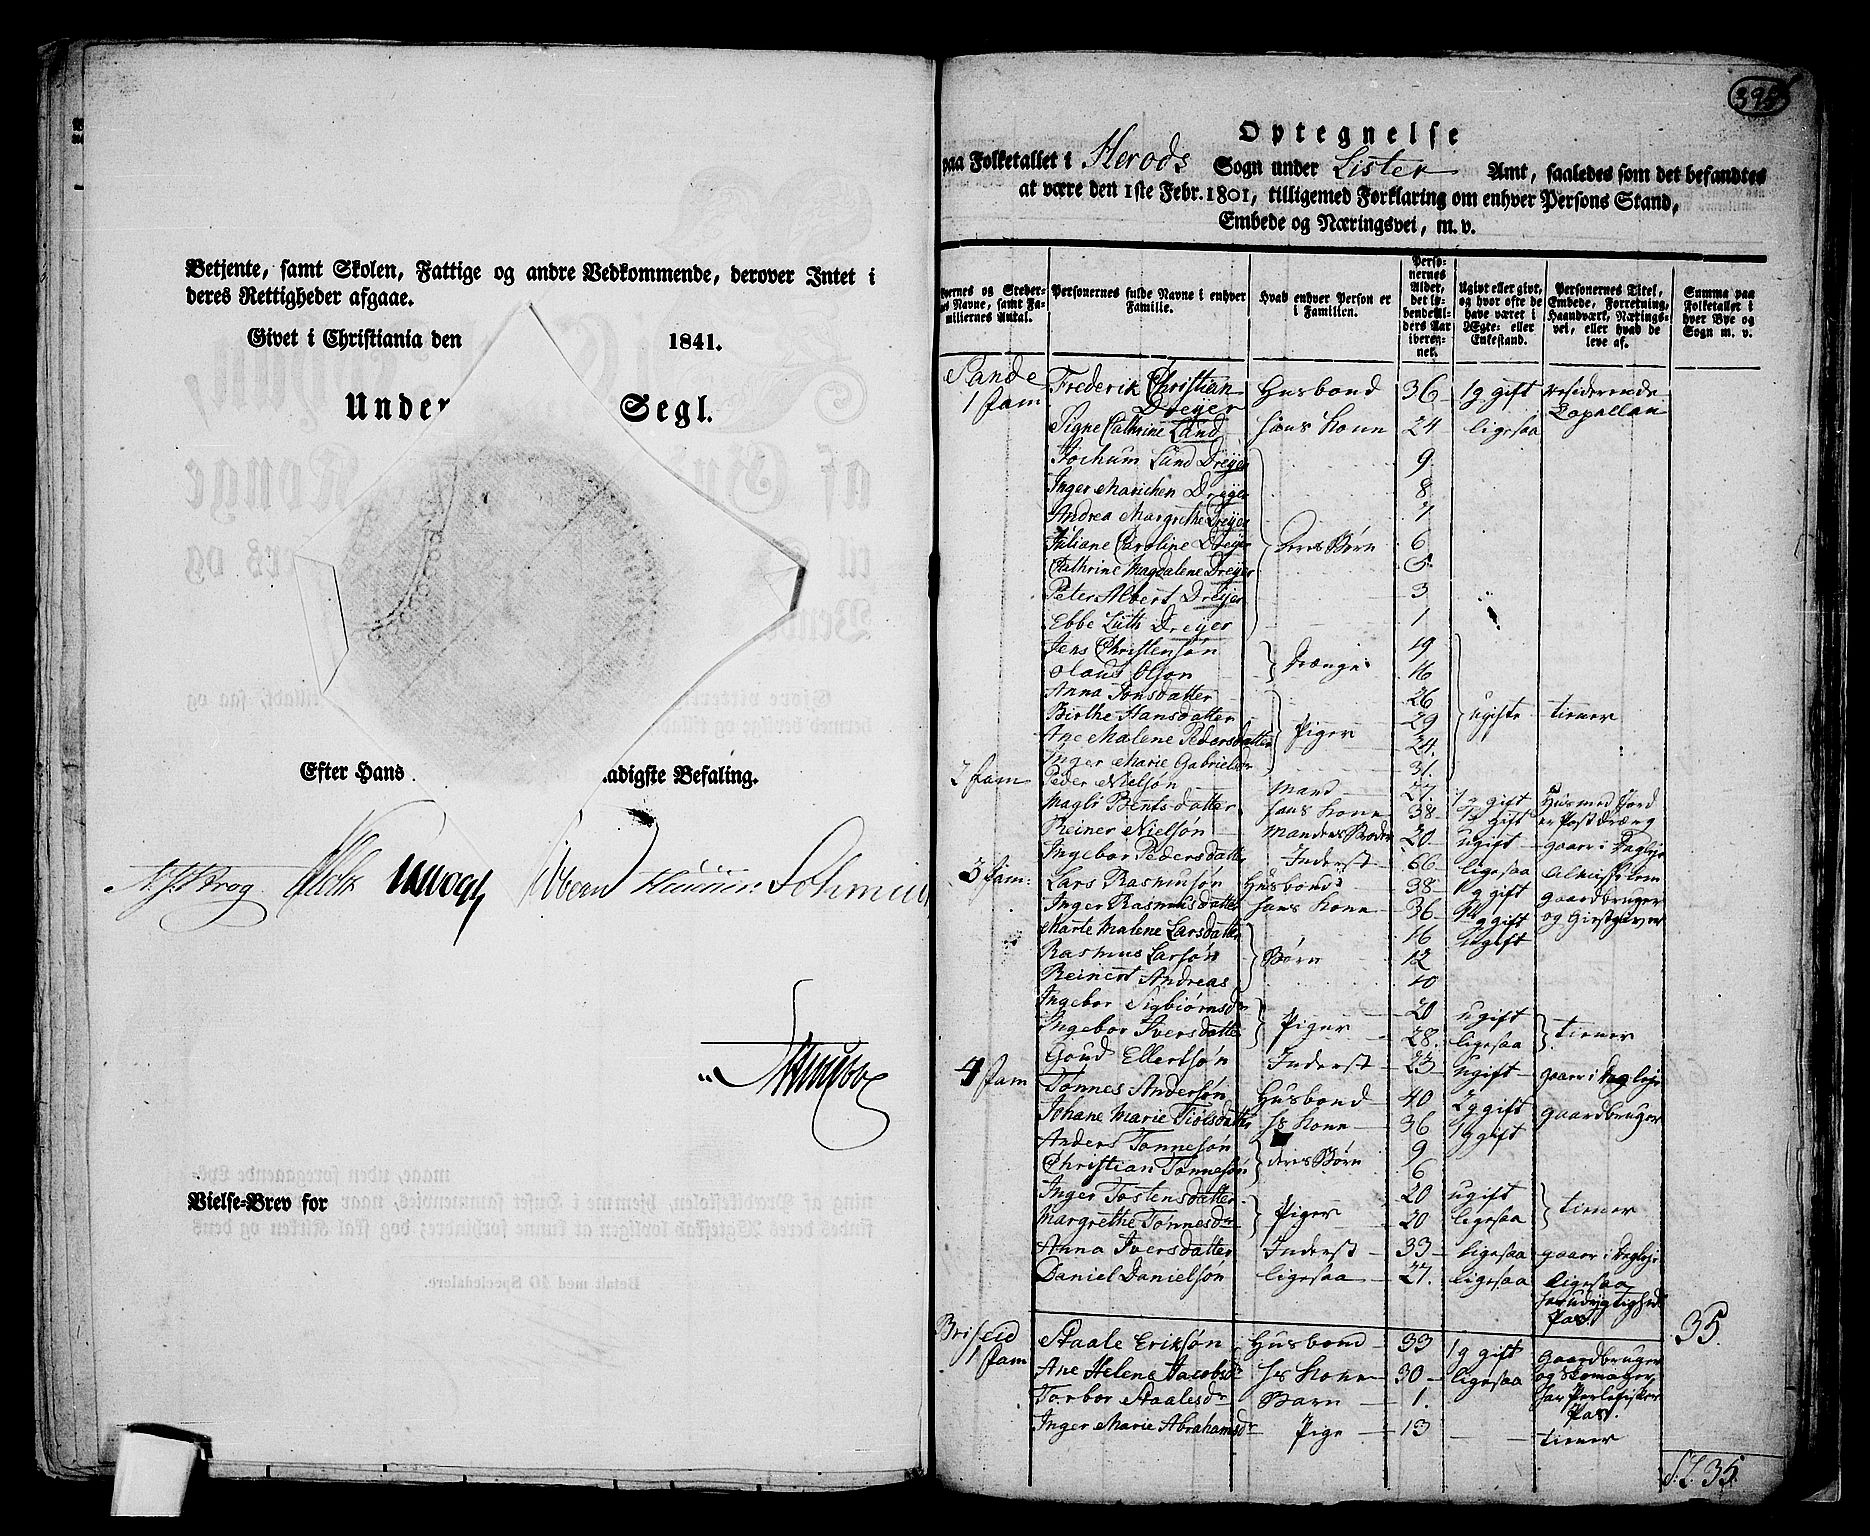 Betjente, samt Skolen, Fattige og andre Vedkommende, derover Intet i
deres Rettigheder afgaae.
Givet i Christiania den 1841.
Under Segl.
Efter Hans adigste Befaling.
Vielse-Brev for
395
Optegnelse
paa Folketallet i Herods Sogn under Lister Amt, saaledes som det befandtes
at være den 1ste Febr. 1801, tilligemed Forklaring om enhver Persons Stand,
Embede og Næringsvei, m. v.
Personernes fulde Navne i enhver Familie. Hvad enhver Person er i Familien. Personernes Alder, det løbende Alders Aar iberegnet. Ugivt eller givt, og hvor ofte de have været i Ægte- eller Enkestand. Personernes Titel, Embede, Forretning, Haandværk, Næringsvei, eller hvad de leve af. Summa paa Folketallet i hver Bye og Sogn m. v.
Sande Frederik Christian Husbond 36 1g gift residerende
1 fam Dreyer Capellan
Signe Cathrine Lund hans Kone 24 ligesaa
Jochum Lund Dreyer 9
Inger Marichen Dreyer 8
Andrea Margrethe Dreyer 7
Juliane Caroline Dreyer Deres Børn 6
Cathrine Magdalene Dreyer 5
Peter Albert Dreyer 3
Ebbe Luth Dreyer 1
Jens Christensøn 19
Olaus Olson Drænge 16
Anna Tonsdatter 26
Birthe Hansdatter 29 ugifte tiener
Ane Malene Pedersdatter Piger 24.
Inger Marie Gabrielsdr 31.
2 fam Peder Nielsøn Mand 27. 1g gift Husmed Jord
Magli Bentsdatter hans Kone 38 1g gift er Postdræng
Reiner Nielsøn Mandens Broder 20 ugift gaaer i Dagleje
Ingebor Pedersdatter Inderst 66 ligesaa Almisselem
3 fam: Lars Rasmusøn Husbond 38 1g gift gaardbruger
Inger Rasmusdatter hans Kone 36 1g gift og Giestgiver
Marte Malene Larsdatter 16 ugift
Rasmus Larsøn Børn 12
Reinert Andreas 10
Ingebor Sigbiørnsdr 20 ugift
Ingebor Iversdatter Piger 28. ligesaa tiener
Goud Ellertsøn Inderst 23 ugift gaaer i Dagleje
4 fam Tønnes Andersøn Husbond 40 2g gift gaardbruger
Johane Marie Tiølsdatter hs Kone 36 1g gift
Anders Tønnesøn 9
Christian Tønnesøn deres Børn 6
Inger Tostensdatter 20 ugift
Margrethe Tønnesdr Piger 20 ligesaa tiener
Anna Iversdatter Inderst 33 ligesaa gaaer i Dagleje
Daniel Danielsøn ligesaa 27. ligesaa ligesaa
har udygtigheds
Pas. 35.
Briseid Staale Eriksøn Husbond 33 1g gift gaardbruger
1 fam Ane Helene Jacobsdr hs Kone 30 ligesaa og skomager,
Torbor Staalesdr Barn 1. har Perlefisker
Pas.
Inger Marie Abrahamsdr Pige 13 tiener
35